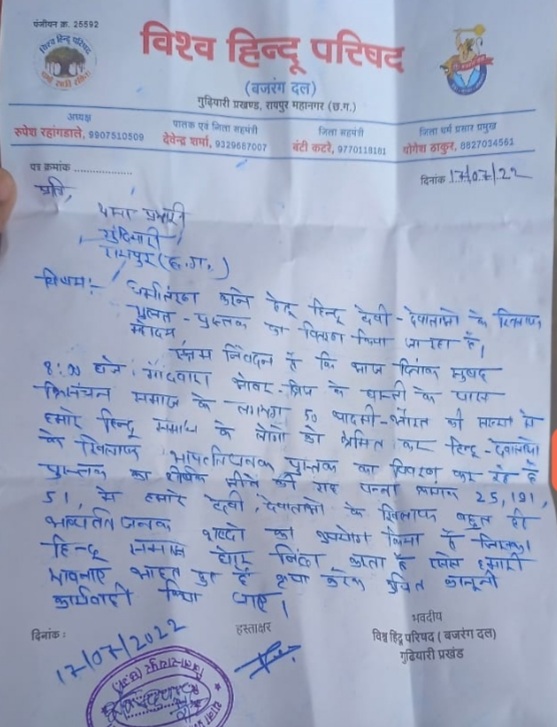 पंजीयन क्र. 26592
विश्व हिन्दू परिषद
(बजरंग दल)
गुढ़ियारी प्रखण्ड, रायपुर महानगर (छ.ग.)
अध्यक्ष
रूपेश रहांगडाले, 9907510509
पालक एवं जिला सहमंत्री
देवेन्द्र शर्मा, 9329667007
जिला सहमंत्री
बंटी कटरे, 9770118181
जिला धर्म प्रसार प्रमुख
योगेश ठाकुर, 8827034561
पत्र क्रमांक
दिनांक 17/07/22
प्रति,
थाना प्रभारी
गुढियारी
रायपुर (छ.ग.)
विषय:- धर्मांतरण करने हेतु हिन्दू देवी-देवताओ के खिलाफ
पुस्तक का वितरण किया जा रहा है।
महोदय
निवेदन है कि आज दिनांक सुबह
8:00 बजे गोंदवारा ओवर-ब्रिज के के पास
समाज के लगभग 50 आदमी-औरत की संख्या में
हमारे हिन्दू समाज के लोगो को भ्रमित कर हिन्दू-
के खिलाफ आपत्तिजनक पुस्तक का वितरण कर रहे है
पुस्तक का शीर्षक की राह पन्ना क्रमांक 25, 191,
51, में हमारे देवी, देवताओ के खिलाफ बहुत ही
आपत्तिजनक शब्दो का उपयोग किया है जिसका
हिन्दू समाज घोर निंदा करता है हमारी
भावनाएं आहत हुई है कृपा करके उचित कानूनी
कार्यवाही किया जाए।
दिनांक :
17/07/2022
हस्ताक्षर
भवदीय
विश्व हिंदू परिषद ( बजरंग दल)
गुढ़ियारी प्रखंड